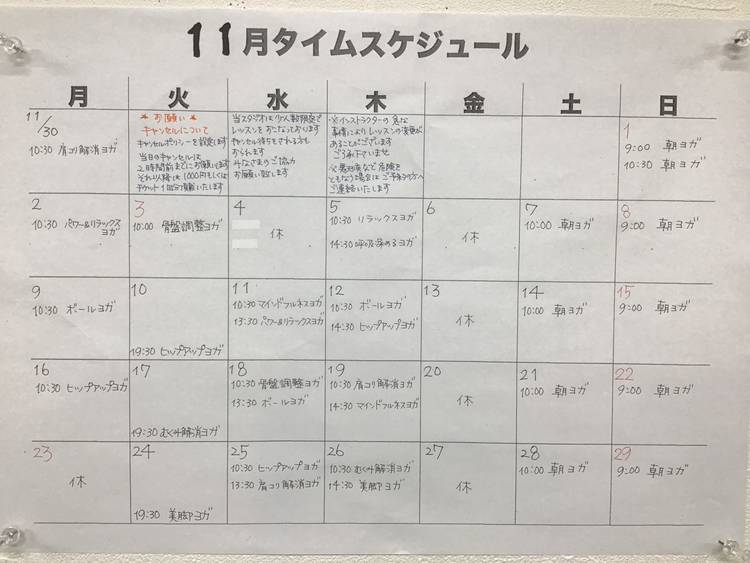 11月タイムスケジュール
月 火 水 木 金 土 日
11/30
10:30 肩コリ解消ヨガ
★ お願い ★
キャンセルについて
キャンセルポリシーを設定します
当日のキャンセルは
2時間前までにお願いします
それ以降は1,000円もしくは
チケット1回分頂戴いたします
当スタジオは少人数制限定で
レッスンをおこなっております
キャンセル待ちをされる方も
おられます
みなさまのご協力
お願い致します
※インストラクターの急な
事情によりレッスンの変更が
あることがございます
ご了承下さいませ
ともなう場合はご予約の方へ
ご連絡いたします
1
9:00 朝ヨガ
10:30 朝ヨガ
2
10:30 パワー&リラックス
ヨガ
3
10:00 骨盤調整ヨガ
4
休
5
10:30 リラックスヨガ
14:30 呼吸深めるヨガ
6
休
7
10:00 朝ヨガ
8
9:00 朝ヨガ
9
10:30 ボールヨガ
10
19:30 ヒップアップヨガ
11
10:30 マインドフルネスヨガ
13:30 パワー&リラックスヨガ
12
10:30 ボールヨガ
14:30 ヒップアップヨガ
13
休
14
10:00 朝ヨガ
15
9:00 朝ヨガ
16
10:30 ヒップアップヨガ
17
19:30 むくみ解消ヨガ
18
10:30 骨盤調整ヨガ
13:30 ボールヨガ
19
10:30 肩コリ解消ヨガ
14:30 マインドフルネスヨガ
20
休
21
10:00 朝ヨガ
22
9:00 朝ヨガ
23
休
24
19:30 美脚ヨガ
25
10:30 ヒップアップヨガ
13:30 肩コリ解消ヨガ
26
10:30 むくみ解消ヨガ
14:30 美脚ヨガ
27
休
28
10:00 朝ヨガ
29
9:00 朝ヨガ